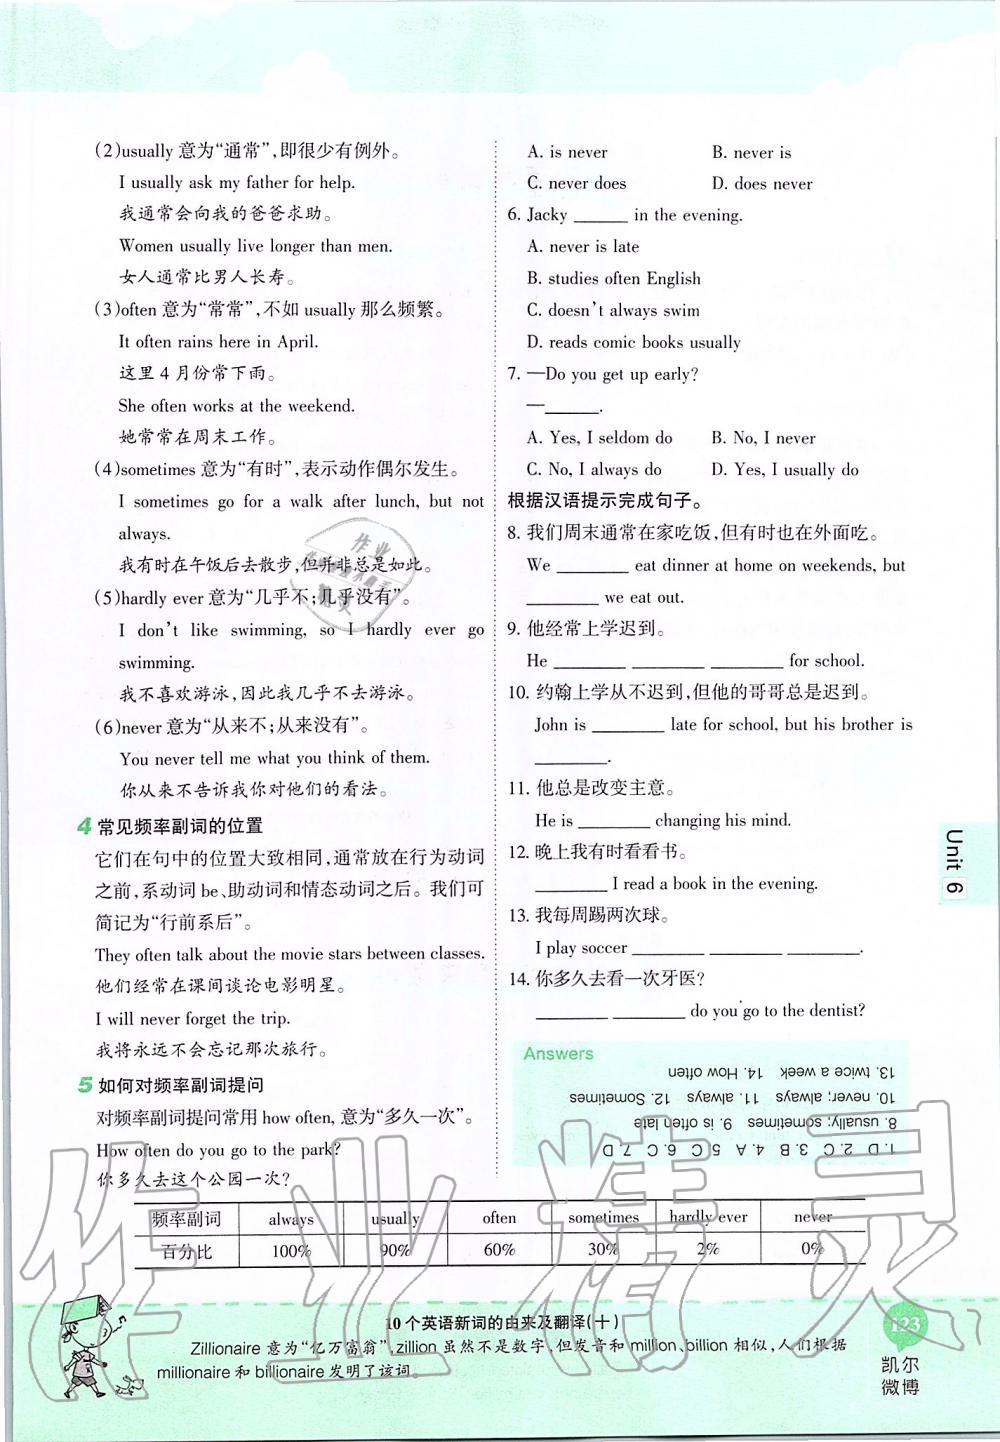 (2)usually 意为“通常”,即很少有例外。
I usually ask my father for help.
我通常会向我的爸爸求助。
Women usually live longer than men.
女人通常比男人长寿。
(3)often 意为“常常”,不如 usually 那么频繁。
It often rains here in April.
这里 4 月份常下雨。
She often works at the weekend.
她常常在周末工作。
(4)sometimes 意为“有时”,表示动作偶尔发生。
I sometimes go for a walk after lunch, but not
always.
我有时在午饭后去散步,但并非总是如此。
(5)hardly ever 意为“几乎不;几乎没有”。
I don't like swimming, so I hardly ever go
swimming.
我不喜欢游泳,因此我几乎不去游泳。
(6)never 意为“从来不;从来没有”。
You never tell me what you think of them.
你从来不告诉我你对他们的看法。
4 常见频率副词的位置
它们在句中的位置大致相同,通常放在行为动词
之前,系动词 be、助动词和情态动词之后。我们可
简记为“行前系后”。
They often talk about the movie stars between classes.
他们经常在课间谈论电影明星。
I will never forget the trip.
我将永远不会忘记那次旅行。
5 如何对频率副词提问
对频率副词提问常用 how often, 意为“多久一次”。
How often do you go to the park?
你多久去这个公园一次?
A. is never B. never is
C. never does D. does never
6. Jacky ______ in the evening.
A. never is late
B. studies often English
C. doesn't always swim
D. reads comic books usually
7. —Do you get up early?
—______.
A. Yes, I seldom do B. No, I never
C. No, I always do D. Yes, I usually do
根据汉语提示完成句子。
8. 我们周末通常在家吃饭,但有时也在外面吃。
We ________ eat dinner at home on weekends, but
________ we eat out.
9. 他经常上学迟到。
He ________ ________ ________ for school.
10. 约翰上学从不迟到,但他的哥哥总是迟到。
John is ________ late for school, but his brother is
________.
11. 他总是改变主意。
He is ________ changing his mind.
12. 晚上我有时看看书。
________ I read a book in the evening.
13. 我每周踢两次球。
I play soccer ________ ________ ________.
14. 你多久去看一次牙医?
________ ________ do you go to the dentist?
Answers
1. D 2. C 3. B 4. A 5. C 6. C 7. D
8. usually; sometimes 9. is often late
10. never; always 11. always 12. Sometimes
13. twice a week 14. How often
频率副词 always usually often sometimes hardly ever never
百分比 100% 90% 60% 30% 2% 0%
Unit 6
10 个英语新词的由来及翻译(十)
Zillionaire 意为“亿万富翁”,zillion 虽然不是数字,但发音和 million、billion 相似,人们根据
millionaire 和 billionaire 发明了该词。
123
凯尔
微博
作业精灵